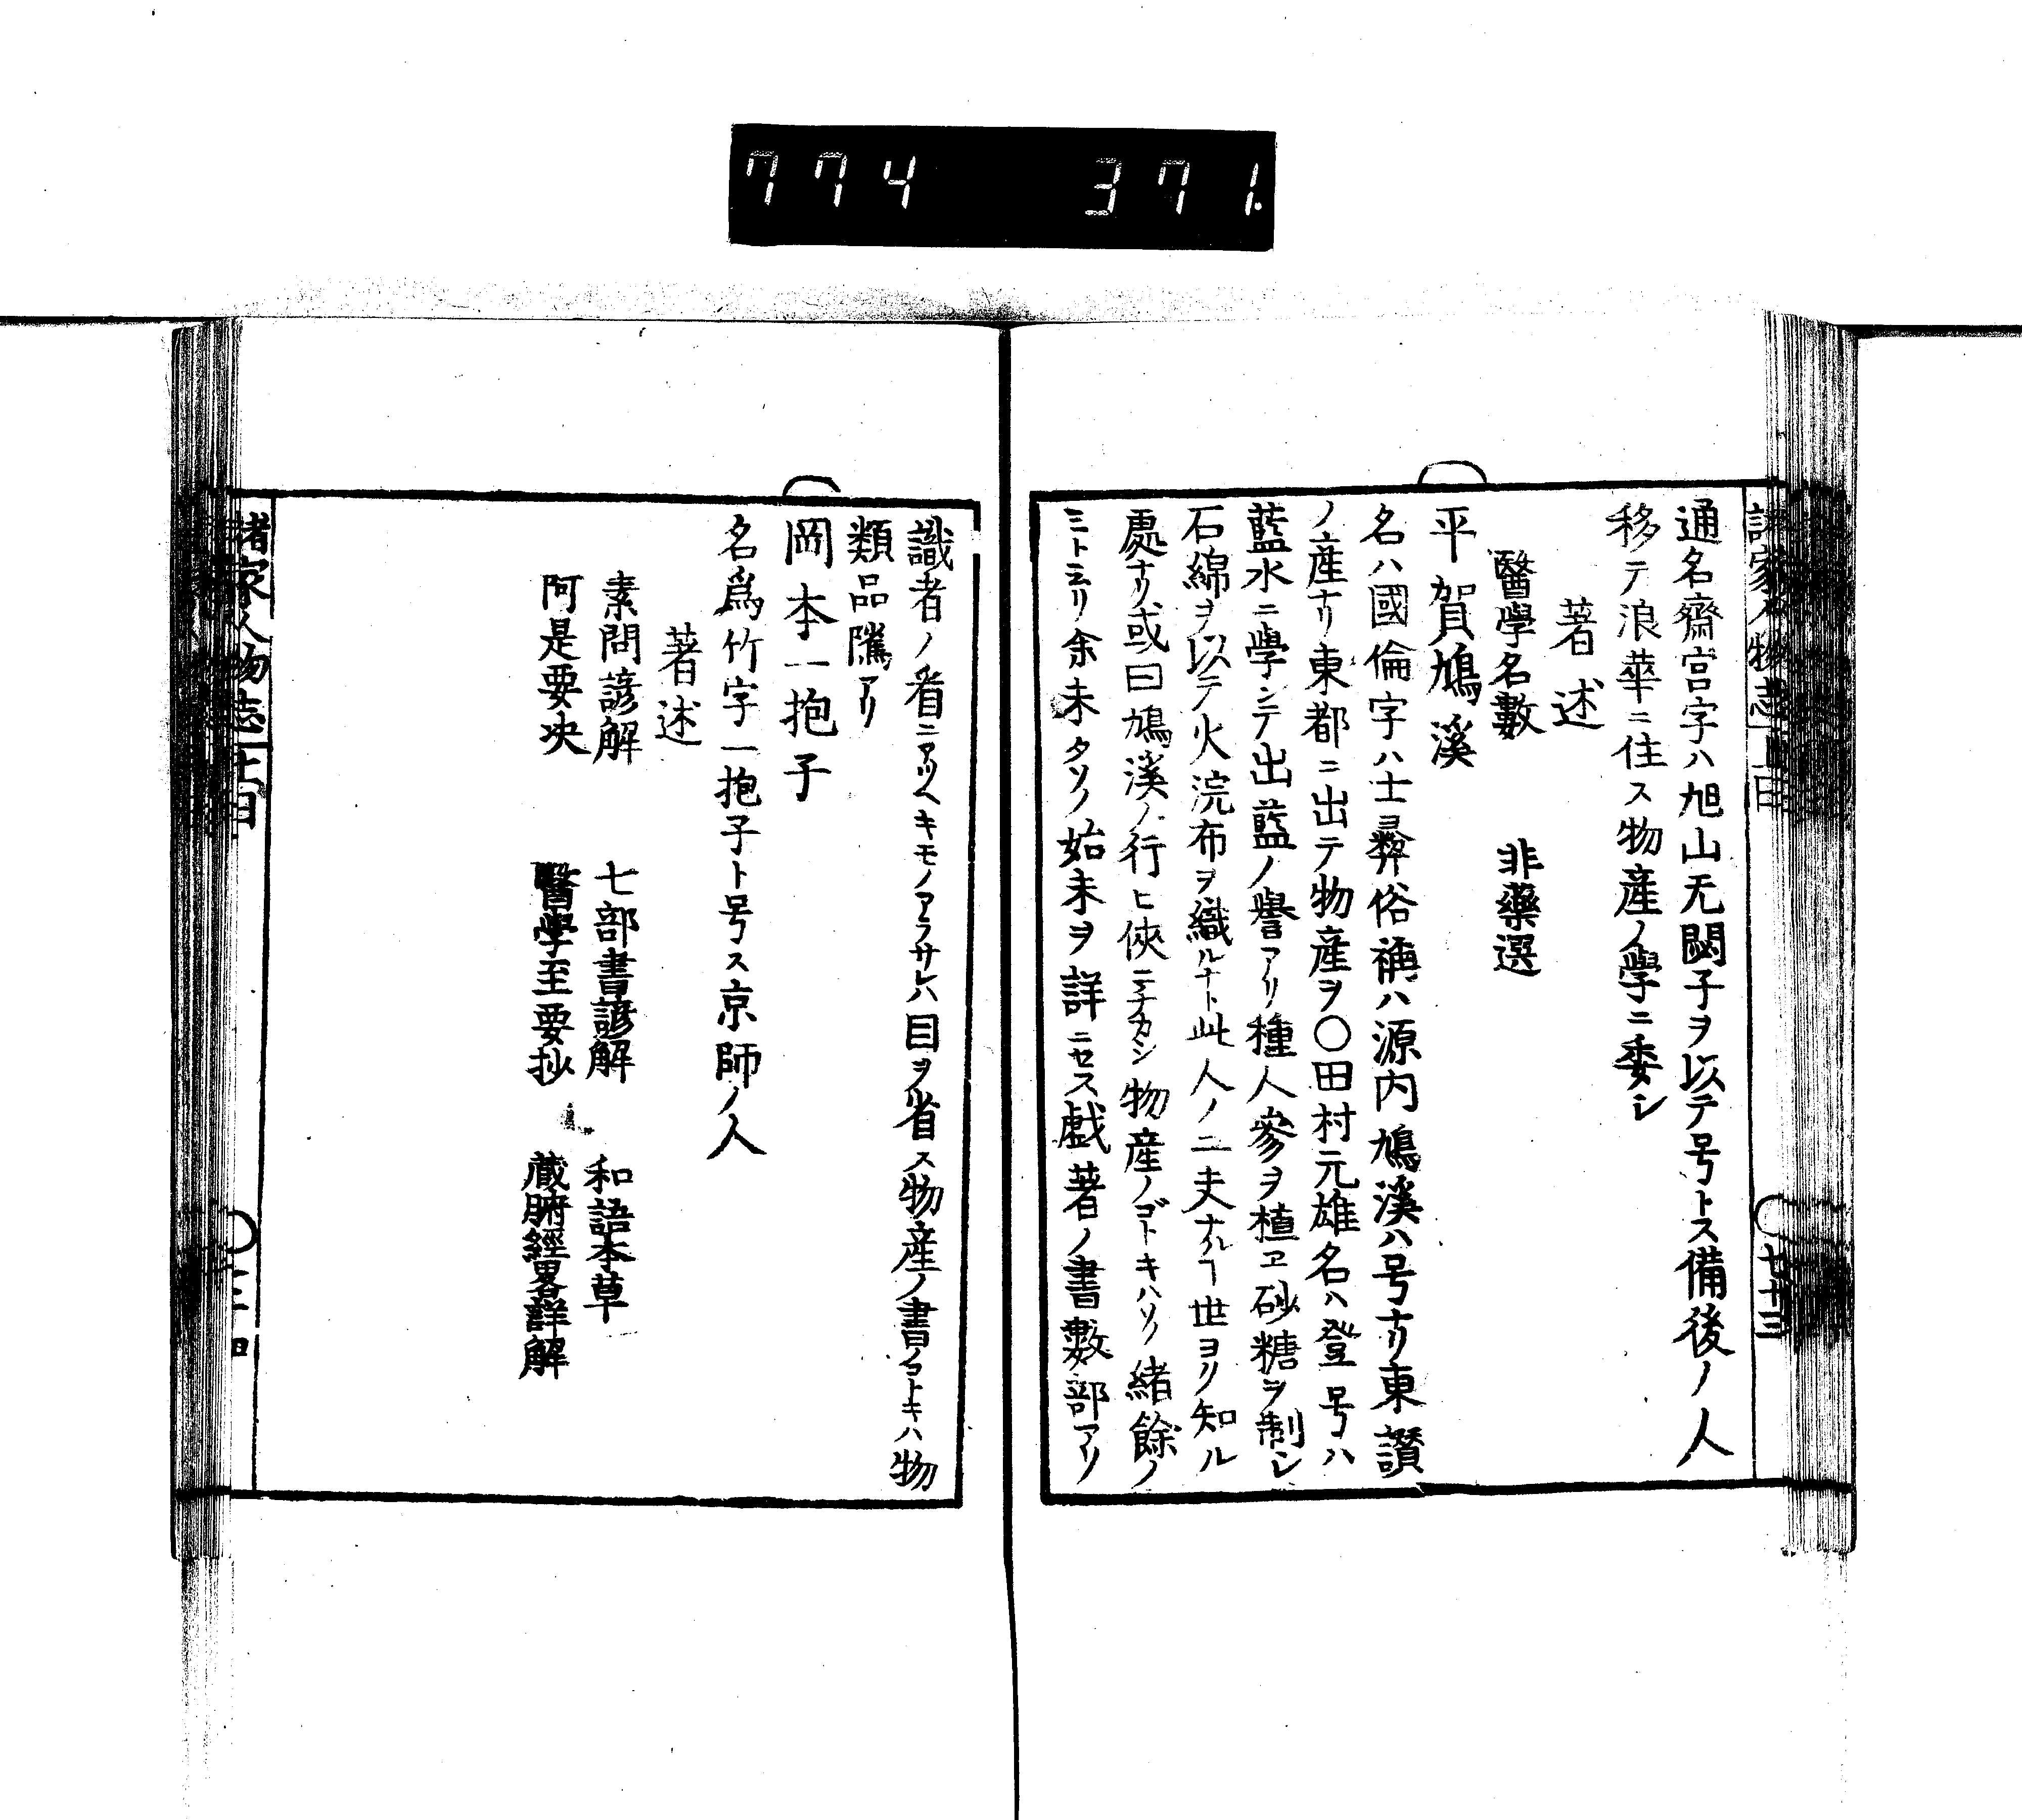 774 371.
通名齋宮字ハ旭山无悶子ヲ以テ号トス備後ノ人
移テ浪華ニ住ス物産ノ學ニ委シ
著述
醫學名數 非藥選
平賀鳩溪
名ハ國倫字ハ士彛俗稱ハ源内鳩溪ハ号ナリ東讃
ノ産ナリ東都ニ出テ物産ヲ〇田村元雄名ハ登号ハ
藍水ニ學ンテ出藍ノ譽アリ種人參ヲ植ヱ砂糖ヲ制シ
石綿ヲ以テ火浣布ヲ織ルナト此人ノ工夫ナルヿ世ヨリ知ル
處ナリ或曰鳩溪ノ行ヒ俠ニチカシ物産ノゴトキハソノ緒餘ノ
ミト云リ余未タソノ始末ヲ詳ニセス戯著ノ書數部アリ
諸家人物志
七十三
識者ノ看ニアツヘキモノアラサレハ目ヲ省ス物産ノ書ノコトキハ物
類品隲アリ
岡本一抱子
名爲竹字一抱子ト号ス京師ノ人
著述
素問諺解 七部書諺解 和語本草
阿是要决 醫學至要抄 蔵腑經畧詳解
諸家人物志